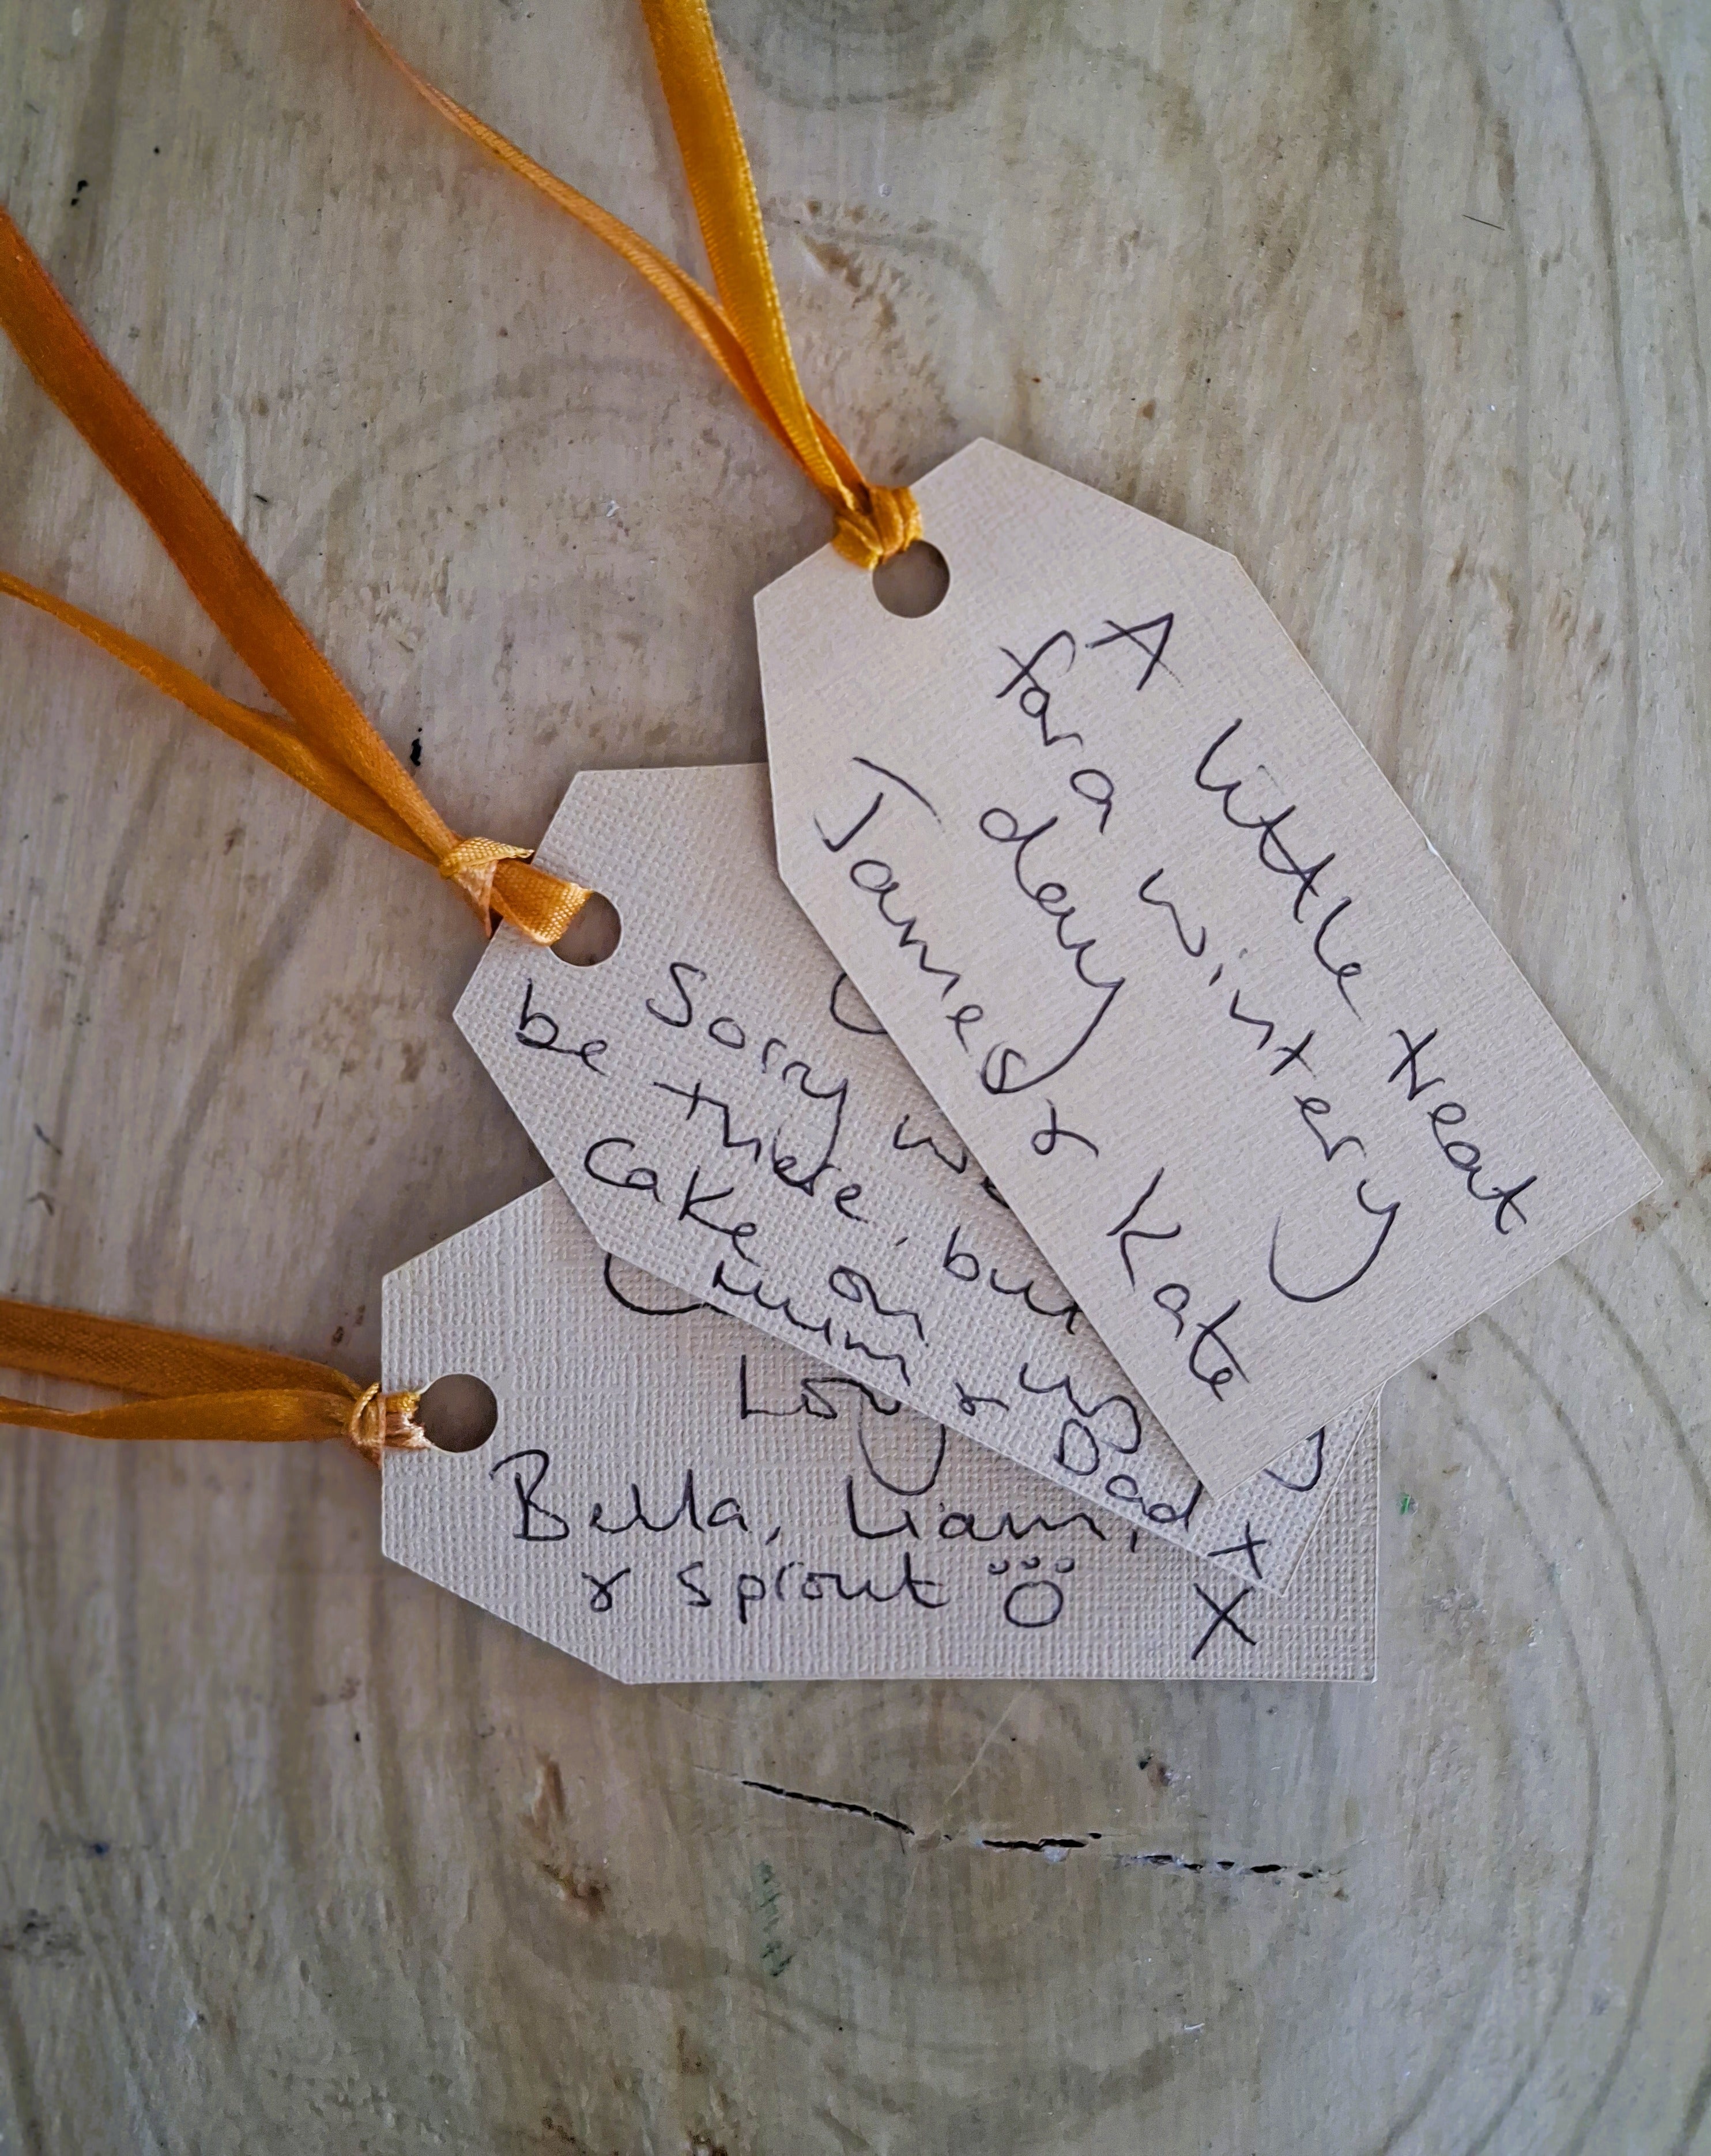 A little treat
for a wintery
day
James & Kate
Sorry
be there, but
Cake on us
Mum & Dad x
Love
Bella, Liam,
& Sprout X